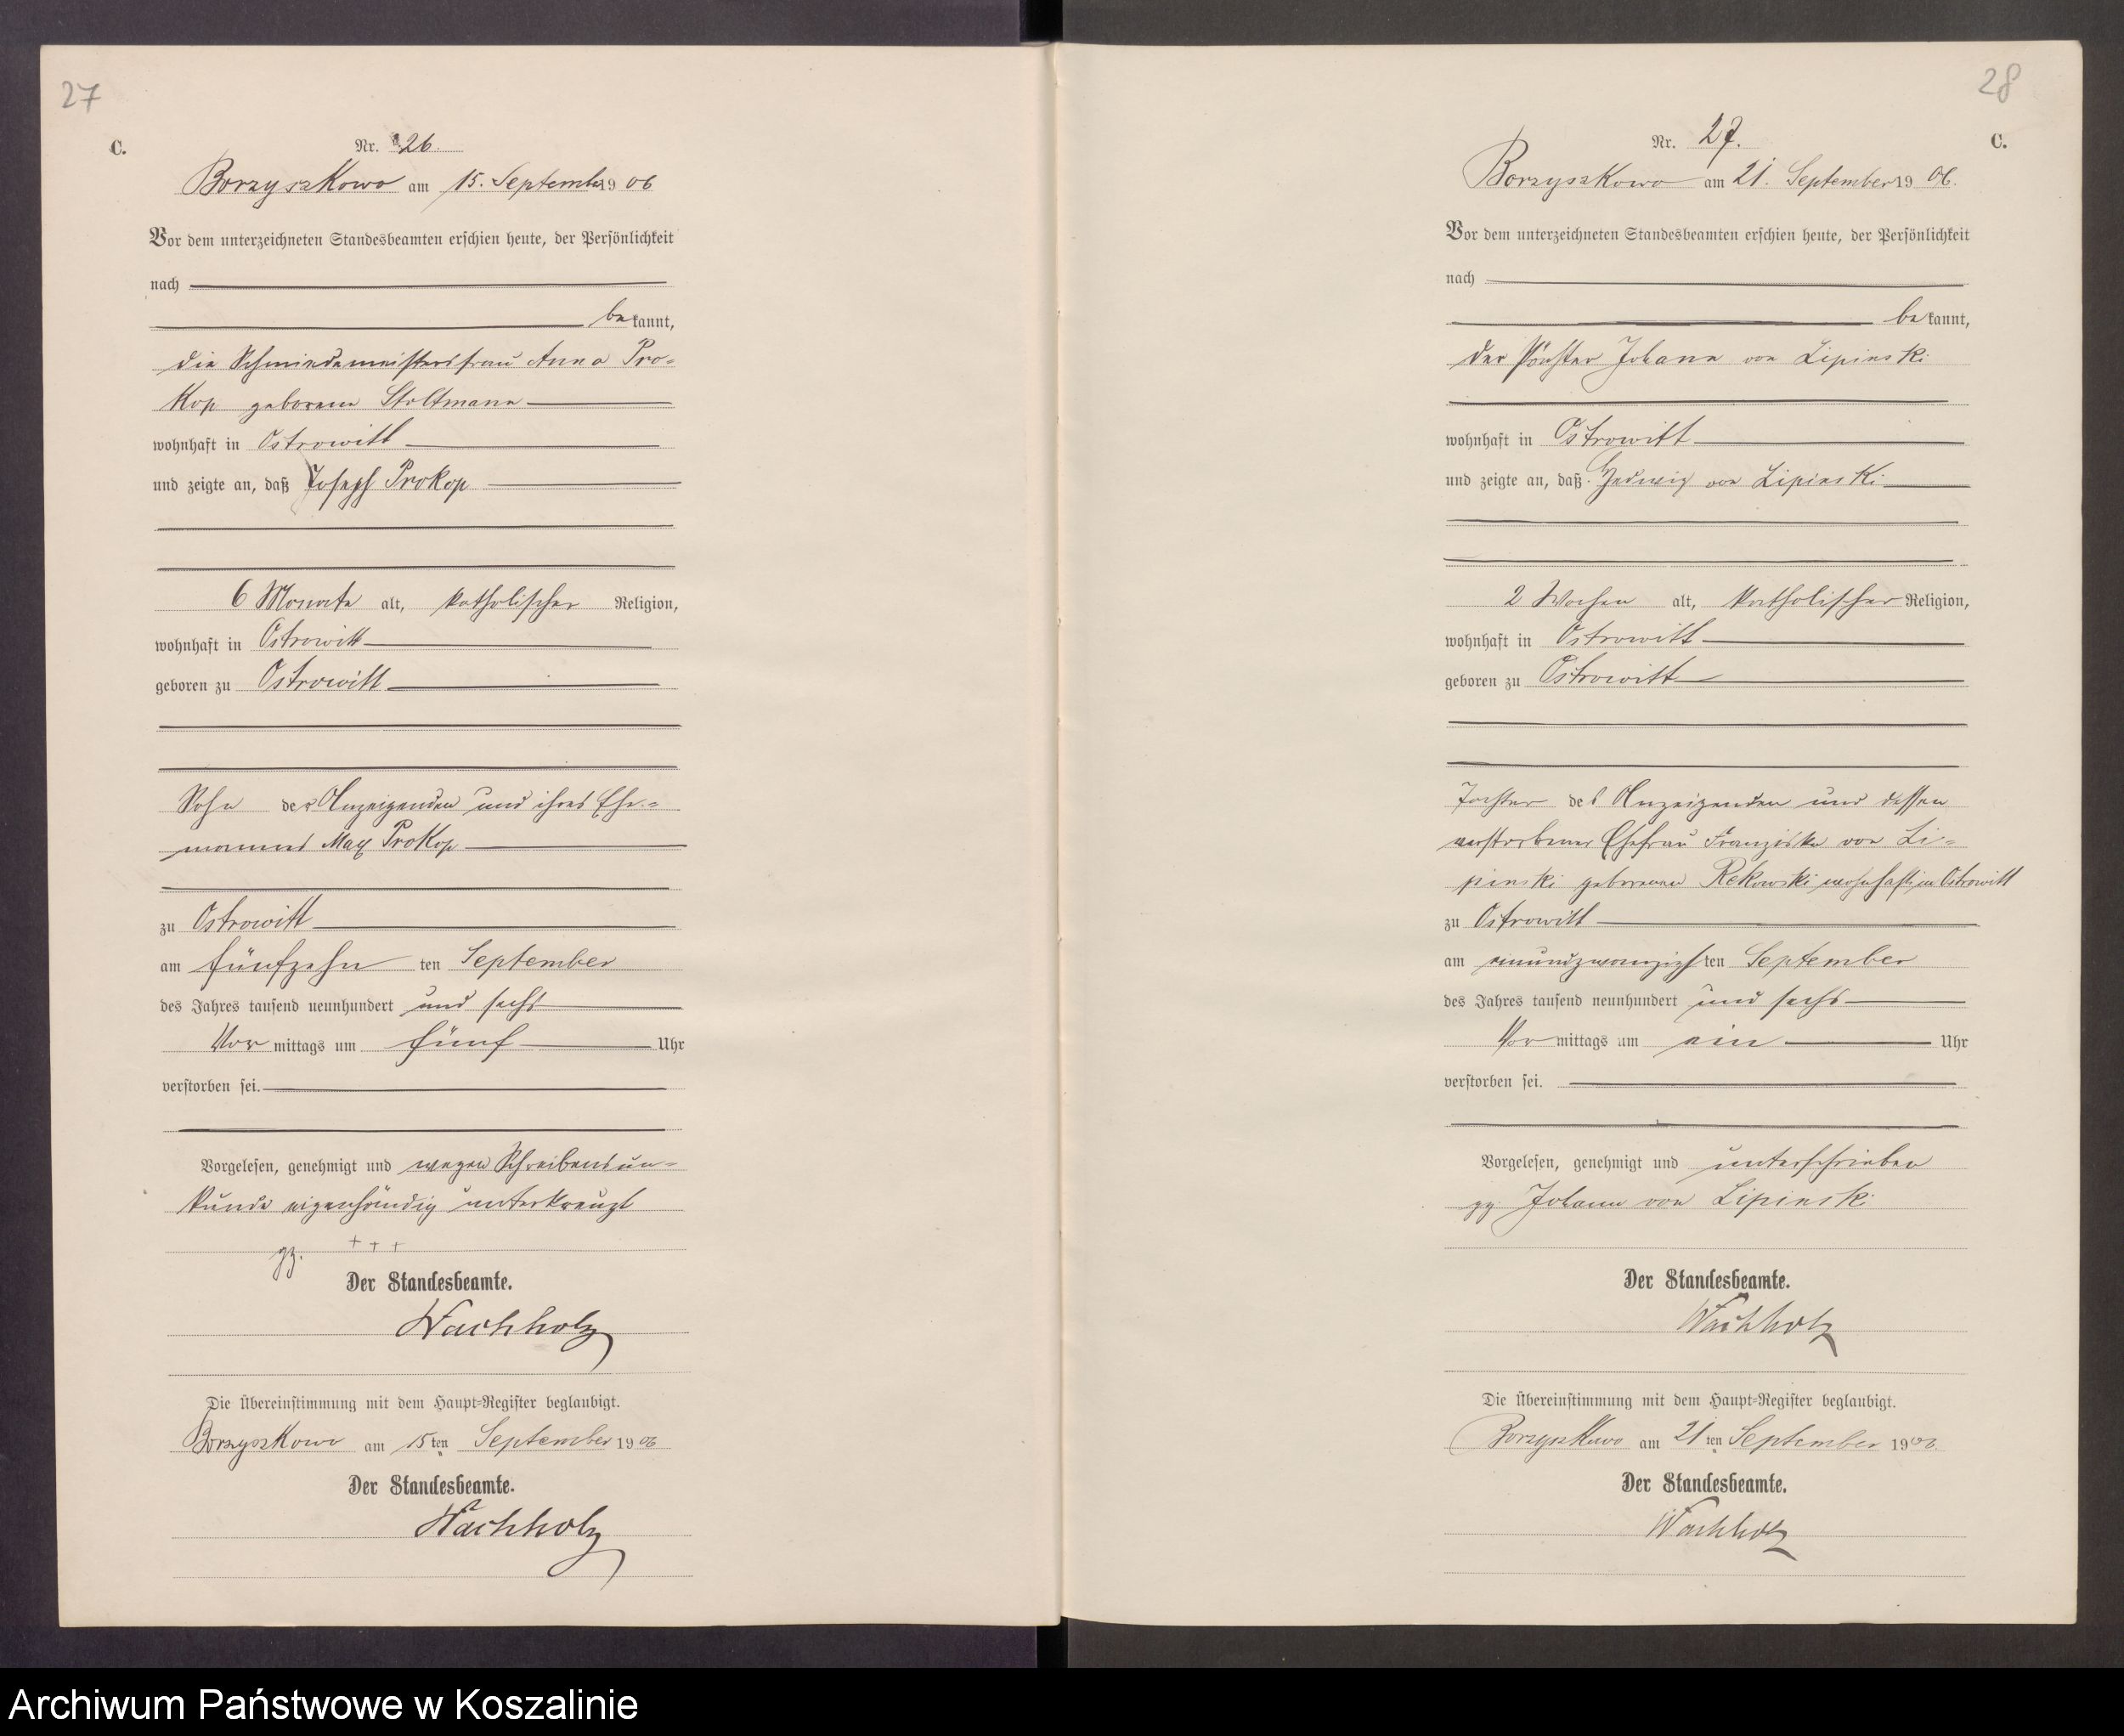 27
C.
Nr. 26.
Borzyszkowo am 15. September 1906
Vor dem unterzeichneten Standesbeamten erschien heute, der Persönlichkeit
nach
bekannt,
die Schmiedemeistersfrau Anna Pro-
kop geborene Stoltmann
wohnhaft in Ostrowitt
und zeigte an, daß Joseph Prokop
6 Monate alt, katholischer Religion,
wohnhaft in Ostrowitt
geboren zu Ostrowitt
Sohn der Anzeigenden und ihres Ehe-
mannes Max Prokop
zu Ostrowitt
am fünfzehn ten September
des Jahres tausend neunhundert und sechs
Vor mittags um fünf Uhr
verstorben sei.
Vorgelesen, genehmigt und wegen Schreibensun-
kunde eigenhändig unterkreuzt
gz. + + +
Der Standesbeamte.
Wachholz
Die Übereinstimmung mit dem Haupt-Register beglaubigt.
Borzyszkowo am 15ten September 1906
Der Standesbeamte.
Wachholz
28
C.
Nr. 27.
Borzyszkowo am 21. September 1906.
Vor dem unterzeichneten Standesbeamten erschien heute, der Persönlichkeit
nach
bekannt,
der Pächter Johann von Lipinski
wohnhaft in Ostrowitt
und zeigte an, daß Hedwig von Lipinski
2 Wochen alt, katholischer Religion,
wohnhaft in Ostrowitt
geboren zu Ostrowitt
Tochter des Anzeigenden und dessen
verstorbener Ehefrau Franziska von Li-
pinski geborenen Rekowski wohnhaft in Ostrowitt
zu Ostrowitt
am einundzwanzigsten September
des Jahres tausend neunhundert und sechs
Vor mittags um ein Uhr
verstorben sei.
Vorgelesen, genehmigt und unterschrieben
gz. Johann von Lipinski
Der Standesbeamte.
Wachholz
Die Übereinstimmung mit dem Haupt-Register beglaubigt.
Borzyszkowo am 21ten September 1906.
Der Standesbeamte.
Wachholz
Archiwum Państwowe w Koszalinie